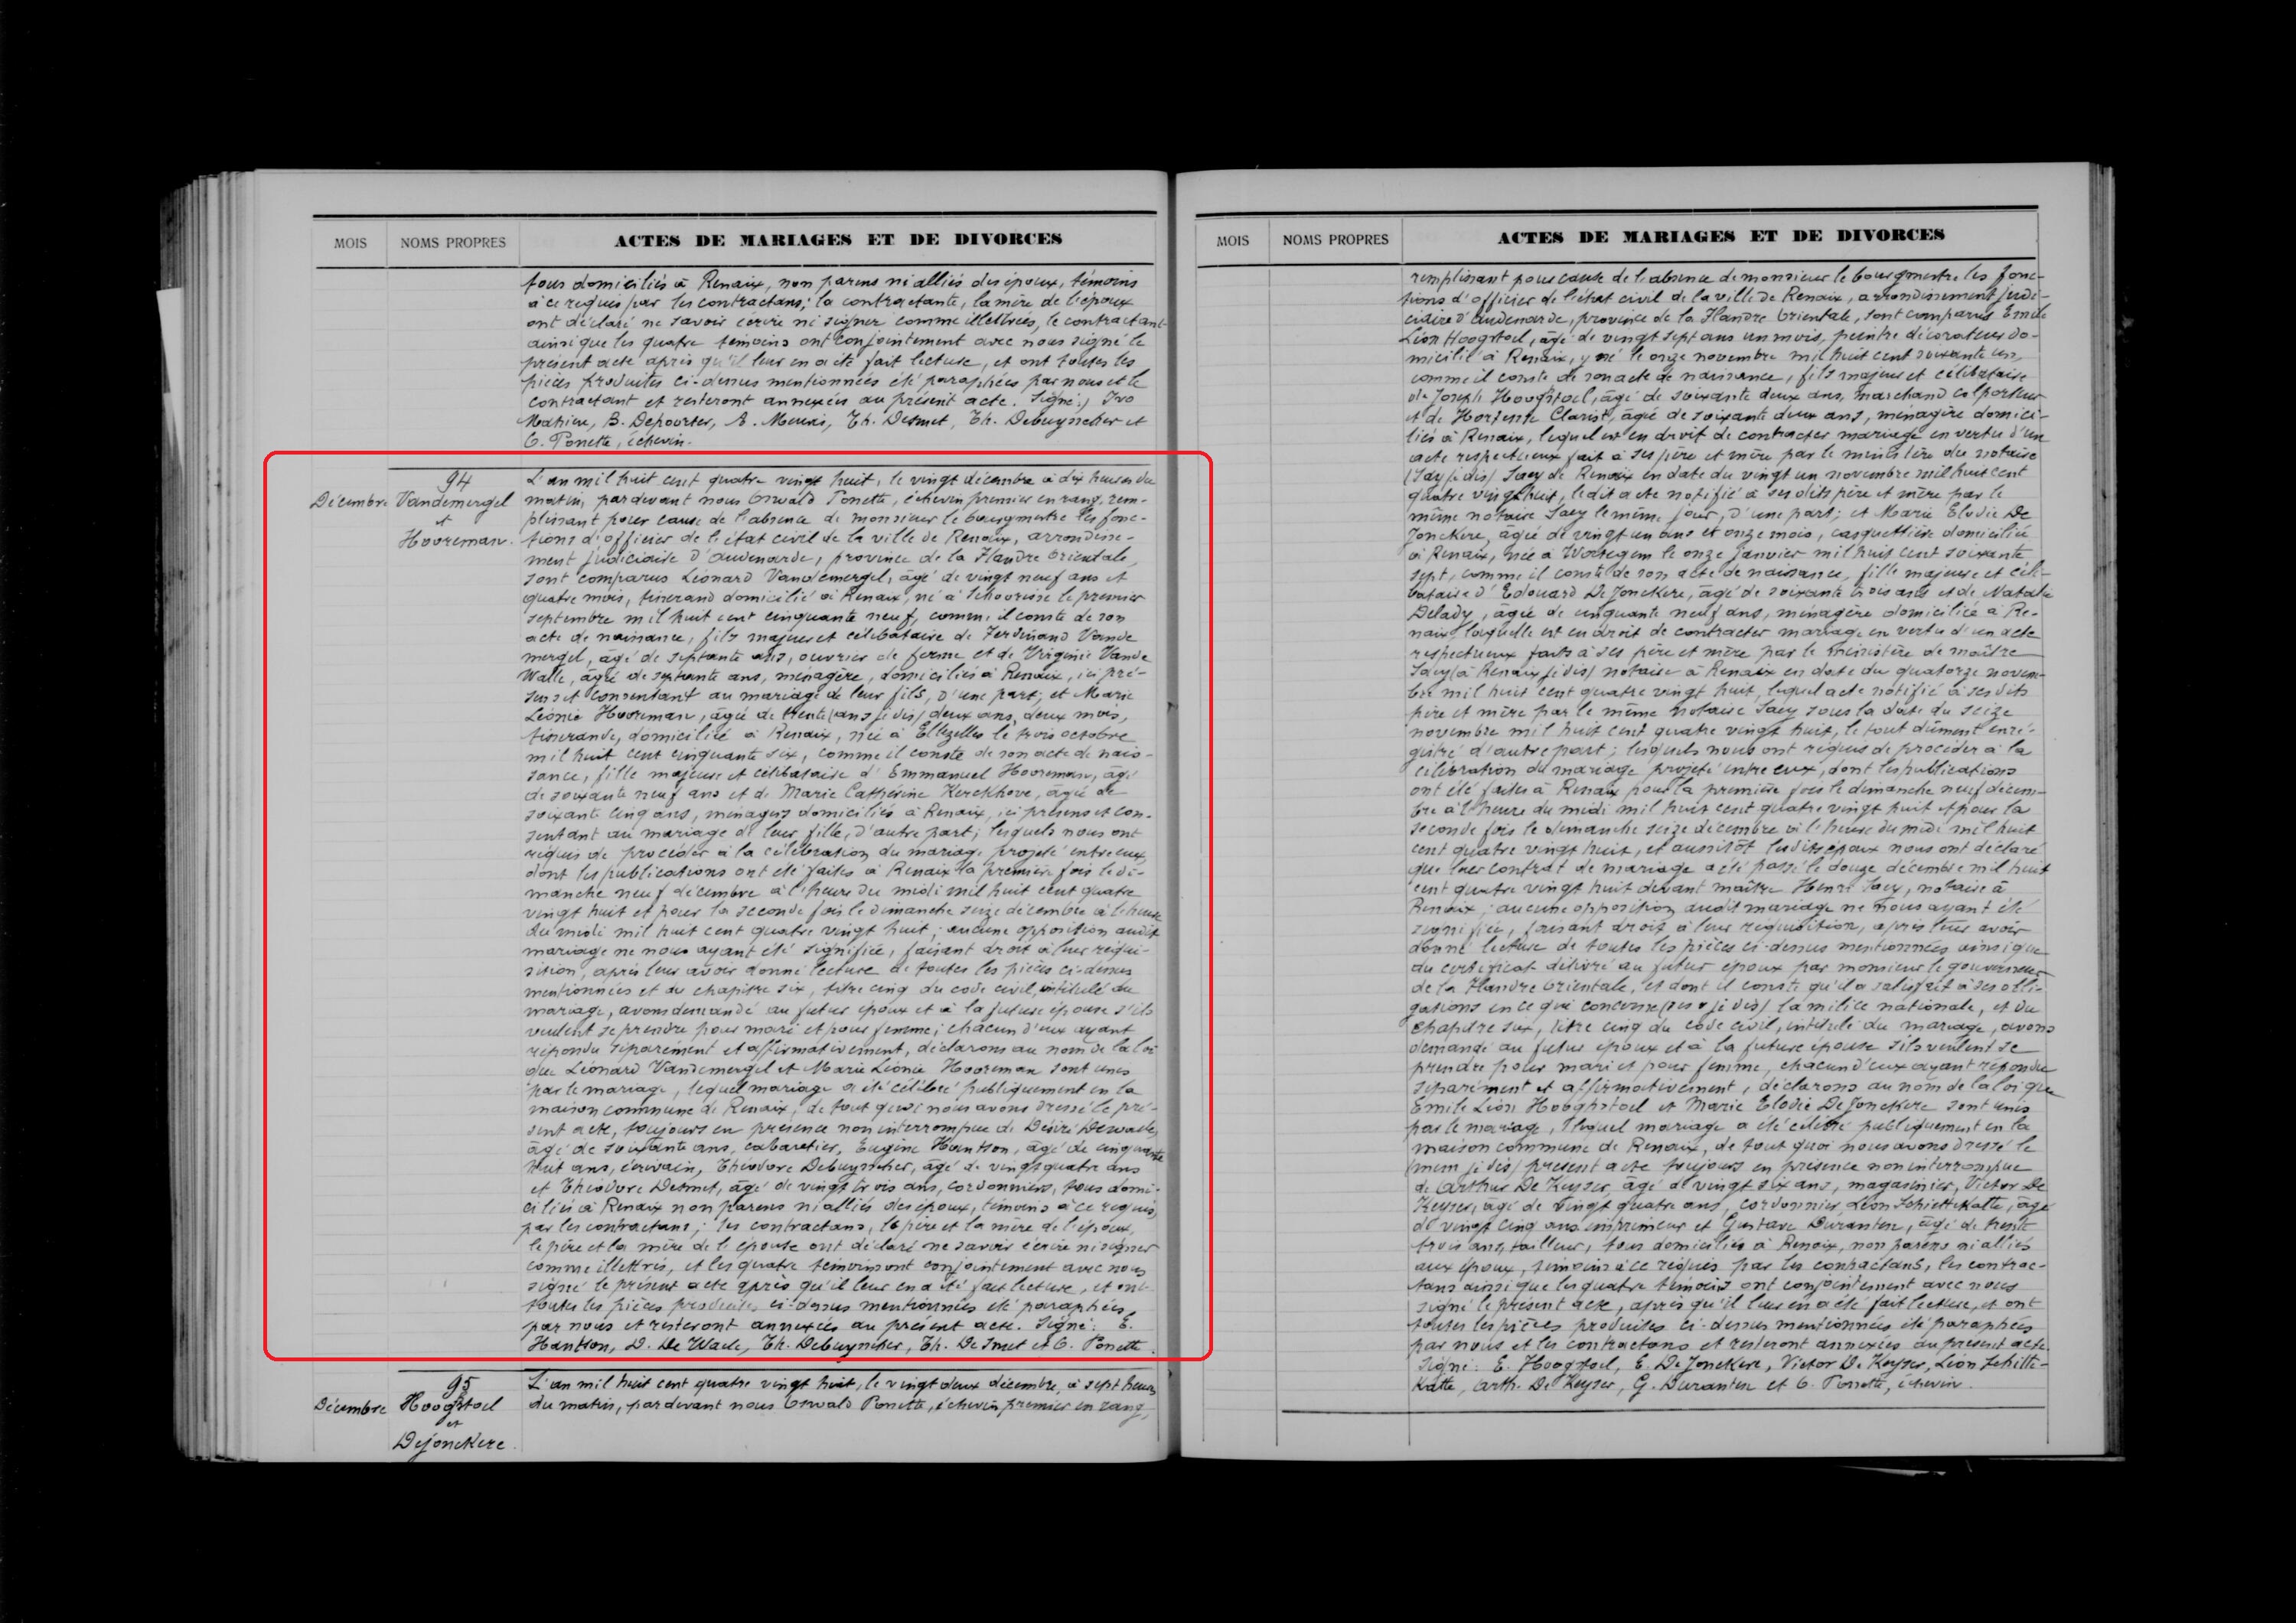 MOIS NOMS PROPRES ACTES DE MARIAGES ET DE DIVORCES
tous domiciliés à Renaix, non parens ni alliés des époux, témoins
à ce requis par les contractans; la contractante, la mère de l'époux
ont déclaré ne savoir écrire ni signer comme illettrées, le contractant
ainsi que les quatre témoins ont conjointement avec nous signé le
présent acte après qu'il leur en a été fait lecture, et ont toutes les
pièces produites ci-dessus mentionnées été paraphées par nous et le
contractant et resteront annexées au présent acte. Signé:, Ivo
Mathieu, B. Depoorter, A. Meuris, Th. Desmet, Th. Debuysscher et
O. Ponette, échevin.
94
Décembre Vandemergel
et
Hooreman.
L'an mil huit cent quatre vingt huit, le vingt décembre à dix heures du
matin, par devant nous Oswald Ponette, échevin premier en rang, rem-
plissant pour cause de l'absence de monsieur le bourgmestre les fonc-
tions d'officier de l'état civil de la ville de Renaix, arrondisse-
ment judiciaire d'audenarde, province de la Flandre Orientale,
sont comparus Léonard Vandemergel, âgé de vingt neuf ans et
quatre mois, tisserand domicilié à Renaix, né à Schoorisse le premier
septembre mil huit cent cinquante neuf, comme il conste de son
acte de naissance, fils majeur et célibataire de Ferdinand Vande
mergel, âgé de septante ans, ouvrier de ferme et de Virginie Vande
Walle, âgée de septante ans, ménagère, domiciliés à Renaix, ici pré-
sens et consentant au mariage de leur fils, d'une part; et Marie
Léonie Hooreman, âgée de trente (ans je dis) deux ans, deux mois,
tisserande, domiciliée à Renaix, née à Ellezelles le trois octobre
mil huit cent cinquante six, comme il conste de son acte de nais-
sance, fille majeure et célibataire d'Emmanuel Hooreman, âgé
de soixante neuf ans et de Marie Cathérine Kerckhove, âgée de
soixante cinq ans, ménagers domiciliés à Renaix, ici présens et con-
sentant au mariage de leur fille, d'autre part; lesquels nous ont
requis de procéder à la célébration du mariage projeté entre eux,
dont les publications ont été faites à Renaix la première fois le di-
manche neuf décembre à l'heure du midi mil huit cent quatre
vingt huit et pour la seconde fois le dimanche seize décembre à l'heure
du midi mil huit cent quatre vingt huit; aucune opposition audit
mariage ne nous ayant été signifiée, faisant droit à leur réqui-
sition, après leur avoir donné lecture de toutes les pièces ci-dessus
mentionnées et du chapitre six, titre cinq du code civil, intitulé du
mariage, avons demandé au futur époux et à la future épouse s'ils
veulent se prendre pour mari et pour femme; chacun d'eux ayant
répondu séparément et affirmativement, déclarons au nom de la loi
que Léonard Vandemergel et Marie Léonie Hooreman sont unis
par le mariage, lequel mariage a été célébré publiquement en la
maison commune de Renaix, de tout quoi nous avons dressé le pré-
sent acte, toujours en présence non interrompue de Désiré Dewaele,
âgé de soixante ans, cabaretier, Eugène Hantson, âgé de cinquante
huit ans, écrivain, Théodore Debuysscher, âgé de vingt quatre ans
et Théodore Desmet, âgé de vingt trois ans, cordonniers, tous domi-
ciliés à Renaix non parens ni alliés des époux, témoins à ce requis
par les contractans; les contractans, le père et la mère de l'époux,
le père et la mère de l'épouse ont déclaré ne savoir écrire ni signer
comme illettrés, et les quatre témoins ont conjointement avec nous
signé le présent acte après qu'il leur en a été fait lecture, et ont
toutes les pièces produites ci-dessus mentionnées été paraphées
par nous et resteront annexées au présent acte. Signé: E.
Hantson, D. De Waele, Th. Debuysscher, Th. De Smet et O. Ponette.
95
Décembre Hooghstoel
et
Dejonckere.
L'an mil huit cent quatre vingt huit, le vingt deux décembre, à sept heures
du matin, par devant nous Oswald Ponette, échevin premier en rang,
MOIS NOMS PROPRES ACTES DE MARIAGES ET DE DIVORCES
remplissant pour cause de l'absence de monsieur le bourgmestre les fonc-
tions d'officier de l'état civil de la ville de Renaix, arrondissement judi-
ciaire d'audenarde, province de la Flandre Orientale, sont comparus Emile
Léon Hoogstoel, âgé de vingt sept ans un mois, peintre décorateur do-
micilié à Renaix, y né le onze novembre mil huit cent soixante un,
comme il conste de son acte de naissance, fils majeur et célibataire
de Joseph Hooghstoel, âgé de soixante deux ans, marchand colporteur
et de Hortense Clarist, âgée de soixante deux ans, ménagère domici-
liés à Renaix, lequel est en droit de contracter mariage en vertu d'un
acte respectueux fait à ses père et mère par le ministère du notaire
(Saey je dis) Saey de Renaix en date du vingt un novembre mil huit cent
quatre vingt huit, le dit acte notifié à ses dits père et mère par le
même notaire Saey le même jour, d'une part; et Marie Elodie De
Jonckere, âgée de vingt un ans et onze mois, casquettière domiciliée
à Renaix, née à Wortegem le onze janvier mil huit cent soixante
sept, comme il conste de son acte de naissance, fille majeure et céli-
bataire d'Edouard De Jonckere, âgé de soixante trois ans et de Natalie
Delady, âgée de cinquante neuf ans, ménagère domiciliée à Re-
naix, laquelle est en droit de contracter mariage en vertu d'un acte
respectueux faits à ses père et mère par le ministère de maître
Saey (à Renaix je dis) notaire à Renaix en date du quatorze novem-
bre mil huit cent quatre vingt huit, lequel acte notifié à ses dits
père et mère par le même notaire Saey sous la date du seize
novembre mil huit cent quatre vingt huit, le tout dûment enré-
gistré d'autre part; lesquels nous ont requis de procéder à la
célébration du mariage projeté entre eux, dont les publications
ont été faites à Renaix pour la première fois le dimanche neuf décem-
bre à l'heure du midi mil huit cent quatre vingt huit et pour la
seconde fois le dimanche seize décembre à l'heure du midi mil huit
cent quatre vingt huit, et aussitôt les dits époux nous ont déclaré
que leur contrat de mariage a été passé le douze décembre mil huit
cent quatre vingt huit devant maître Henri Saey, notaire à
Renaix; aucune opposition audit mariage ne nous ayant été
signifiée, faisant droit à leur réquisition, après leur avoir
donné lecture de toutes les pièces ci-dessus mentionnées ainsi que
du certificat délivré au futur époux par monsieur le gouverneur
de la Flandre Orientale, et dont il conste qu'il a satisfait à ses obli-
gations en ce qui concerne je dis) la milice nationale, et du
chapitre six, titre cinq du code civil, intitulé du mariage, avons
demandé au futur époux et à la future épouse s'ils veulent se
prendre pour mari et pour femme, chacun d'eux ayant répondu
séparément et affirmativement, déclarons au nom de la loi que
Emile Léon Hooghstoel et Marie Elodie De Jonckere sont unis
par le mariage, lequel mariage a été célébré publiquement en la
maison commune de Renaix, de tout quoi nous avons dressé le
(mem je dis) présent acte toujours en présence non interrompue
de Arthur De Keyser, âgé de vingt six ans, magasinier, Victor De
Keyser, âgé de vingt quatre ans, cordonnier, Léon Schiettekatte, âgé
de vingt cinq ans imprimeur et Gustave Duranten, âgé de trente
trois ans, tailleur, tous domiciliés à Renaix, non parens ni alliés
aux époux, témoins à ce requis par les contractans, les contrac-
tans ainsi que les quatre témoins ont conjointement avec nous
signé le présent acte, après qu'il leur en a été fait lecture, et ont
toutes les pièces produites ci-dessus mentionnées été paraphées
par nous et les contractans et resteront annexées au présent acte.
Signé: E. Hoogstoel, E. De Jonckere, Victor De Keyser, Léon Schitte-
Katte, Arth. De Keyser, G. Duranten et O. Ponette, échevin.